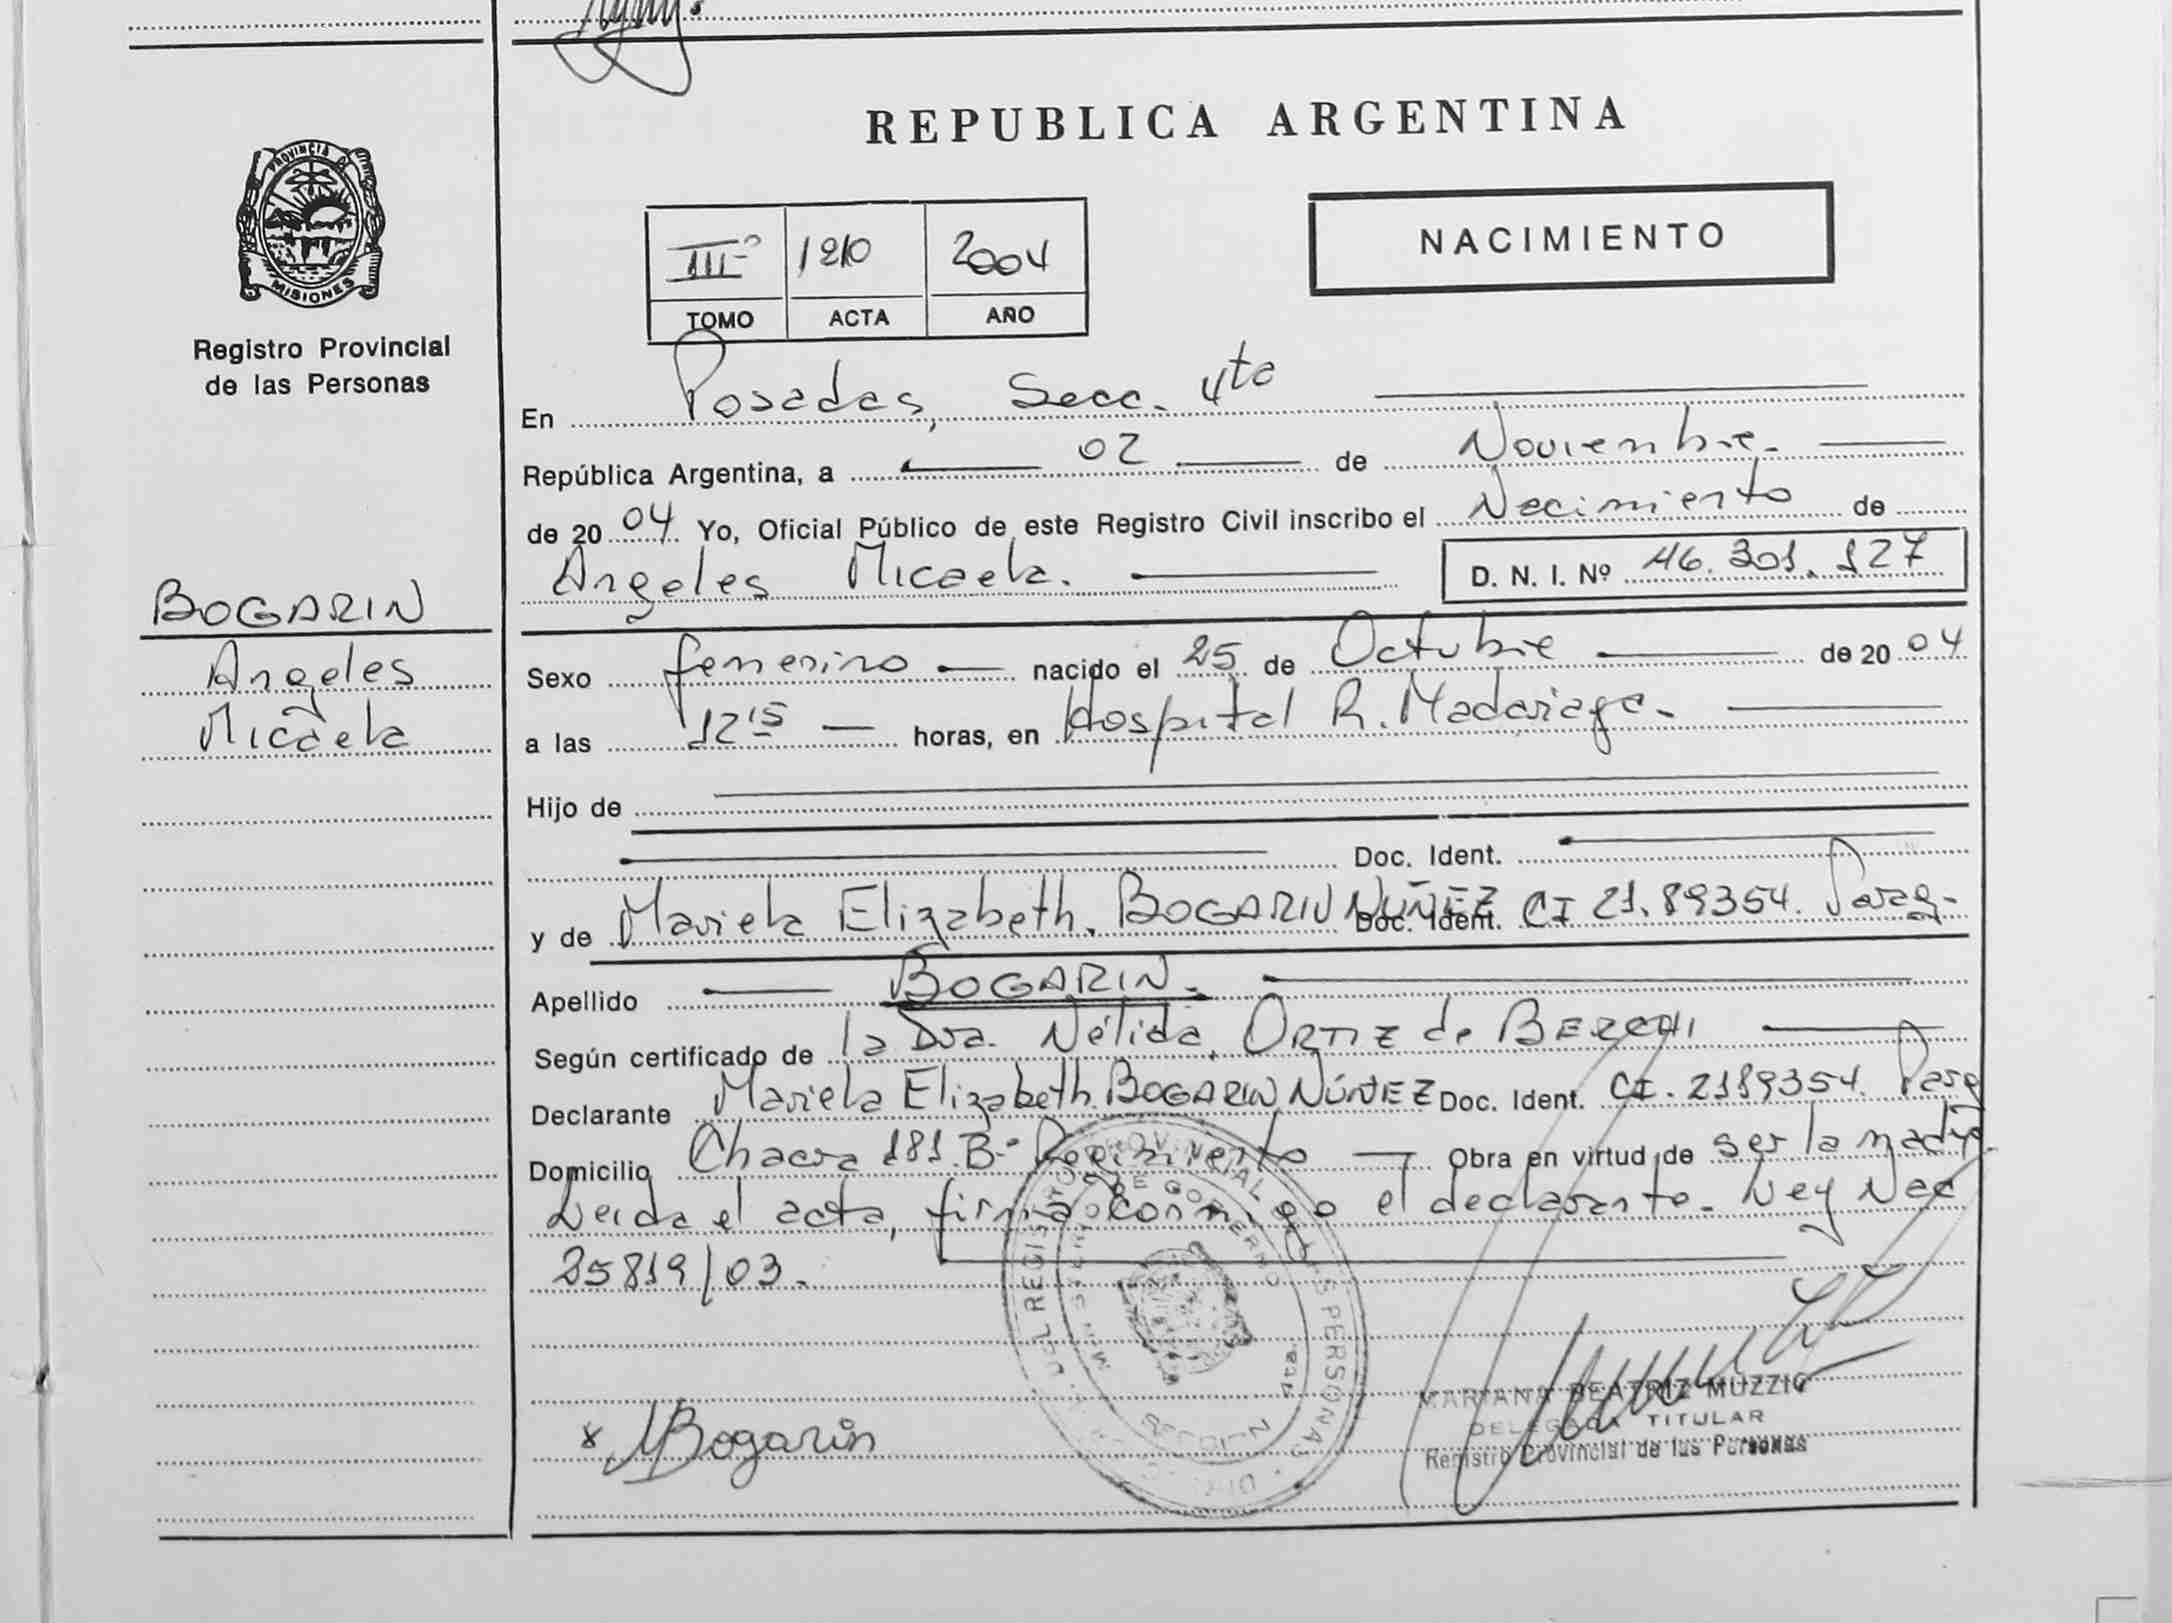 REPUBLICA ARGENTINA
PROVINCIA DE
MISIONES
Registro Provincial
de las Personas
III º 1210 2004
TOMO ACTA AÑO
NACIMIENTO
En Posadas, Secc. 4ta
República Argentina, a 02 de Noviembre.
de 2004 Yo, Oficial Público de este Registro Civil inscribo el Nacimiento de
Angeles Micaela. D. N. I. Nº 46.301.127
BOGARIN
Angeles
Micaela
Sexo femenino nacido el 25 de Octubre de 2004
a las 12 15 horas, en Hospital R. Madariaga.
Hijo de
Doc. Ident.
y de Mariela Elizabeth. BOGARIN NÚÑEZ Doc. Ident. CI 21.89354. Parag.
Apellido BOGARIN.
Según certificado de la Dra. Nélida, ORTIZ de
Declarante Mariela Elizabeth. BOGARIN NÚÑEZ Doc. Ident. CI. 2189354. Parag
Domicilio Chacra 181. Bº Regimiento Obra en virtud de ser la madre.
Leida el acta, firma conmigo el declarante. Ley Nac
25819/03.
DEL REGISTRO PROVINCIAL DE LAS PERSONAS
MINISTERIO DE GOBIERNO
SECCION 4ta.
MBogarin
MARIANA BEATRIZ MUZZIO
DELEGADA TITULAR
Registro Provincial de las Personas